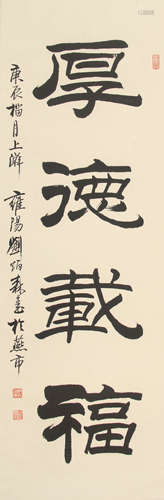 厚德載福
庚辰榴月上澣 雍陽劉炳森書於燕市